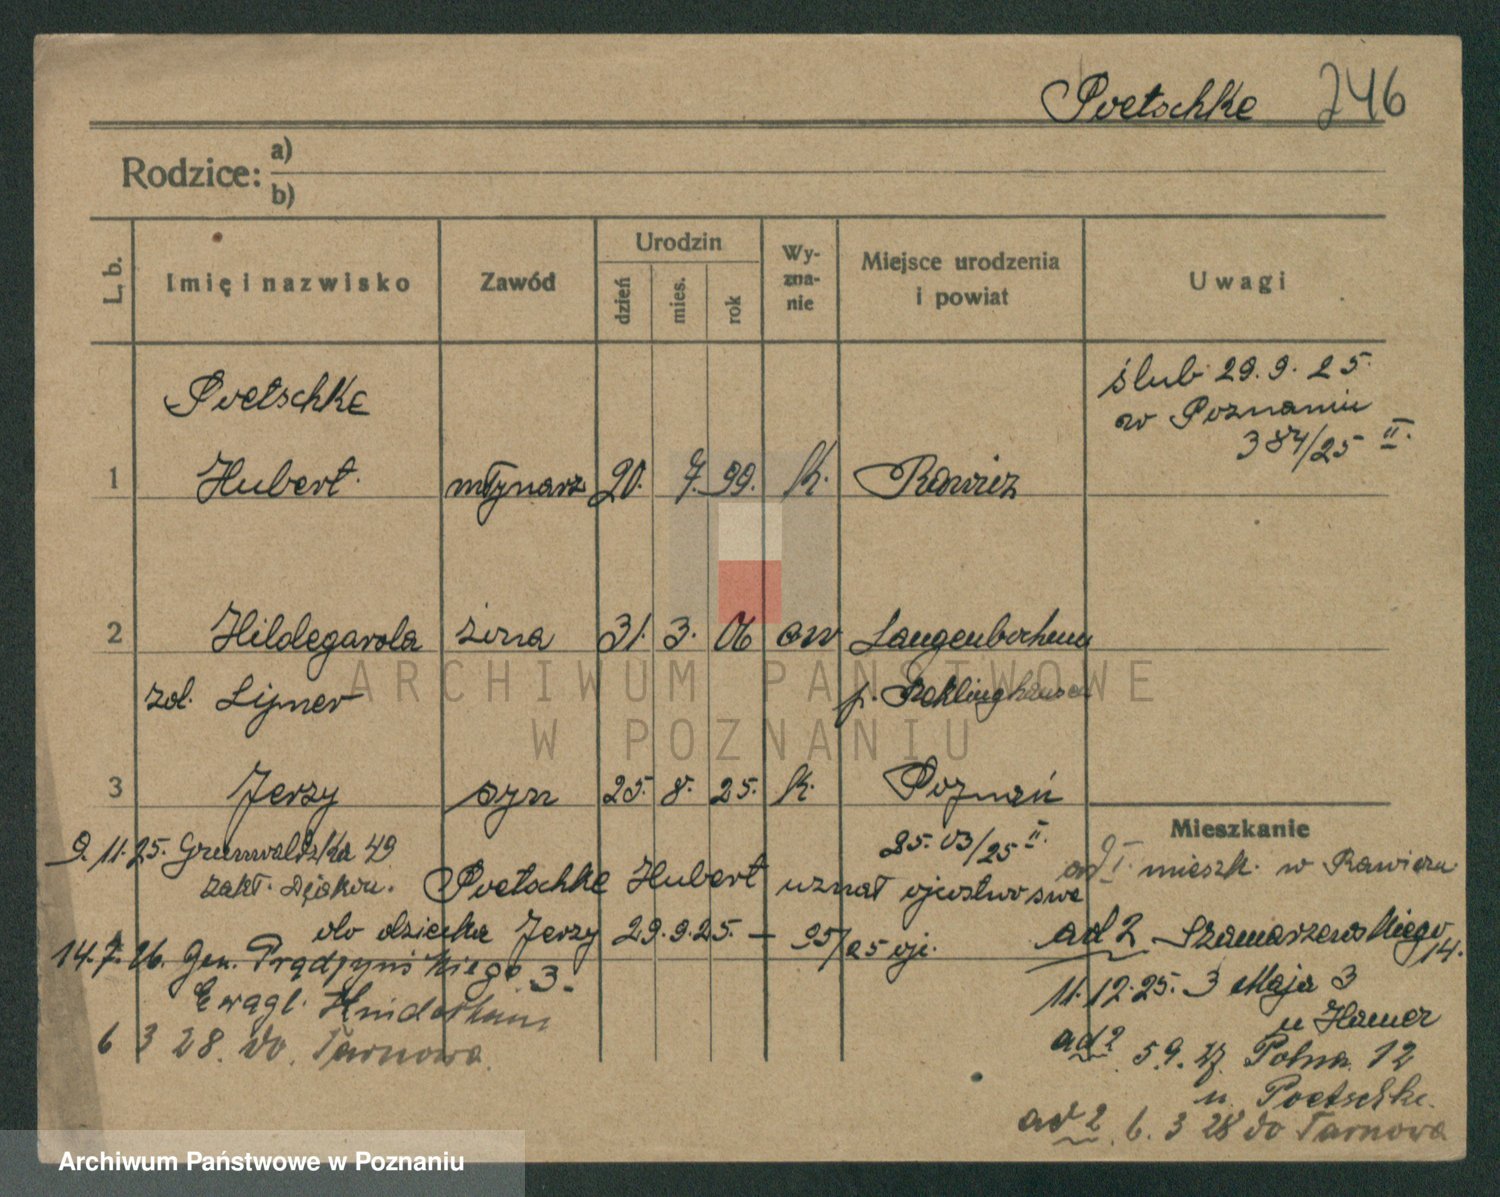 Poetschke 246
Rodzice: a)
b)
L. b. Imię i nazwisko Zawód Urodzin dzień mies. rok Wy-zna-nie Miejsce urodzenia i powiat Uwagi
Poetschke
ślub 29.9.25.
w Poznaniu
384/25 II.
1 Hubert młynarz 20. 7. 99. k. Rawicz
2 Hildegarda żona 31. 3. 06 ew Langenbochum
zd. Lipner p. Reklinghausen
ARCHIWUM PAŃSTWOWE
W POZNANIU
3 Jerzy syn 25. 8. 25. k. Poznań
25.03/25 II.
Mieszkanie
9.11.25. Grunwaldzka 49
ad I. mieszk. w Rawiczu
zakł. Djakon.
Poetschke Hubert uznał ojcostwo swe
do dziecka Jerzy 29.9.25. – 95/25 oj.
ad 2 Szamarzewskiego 14.
14.7.26. Gen. Prądzyńskiego 3.
11.12.25. 3 Maja 3
Ewagl.
u Hamer
6 3 28. do Tarnowa.
ad 2 5.9.27. Polna 12
u. Poetschke.
ad 2. 6. 3 28 do Tarnowa
Archiwum Państwowe w Poznaniu